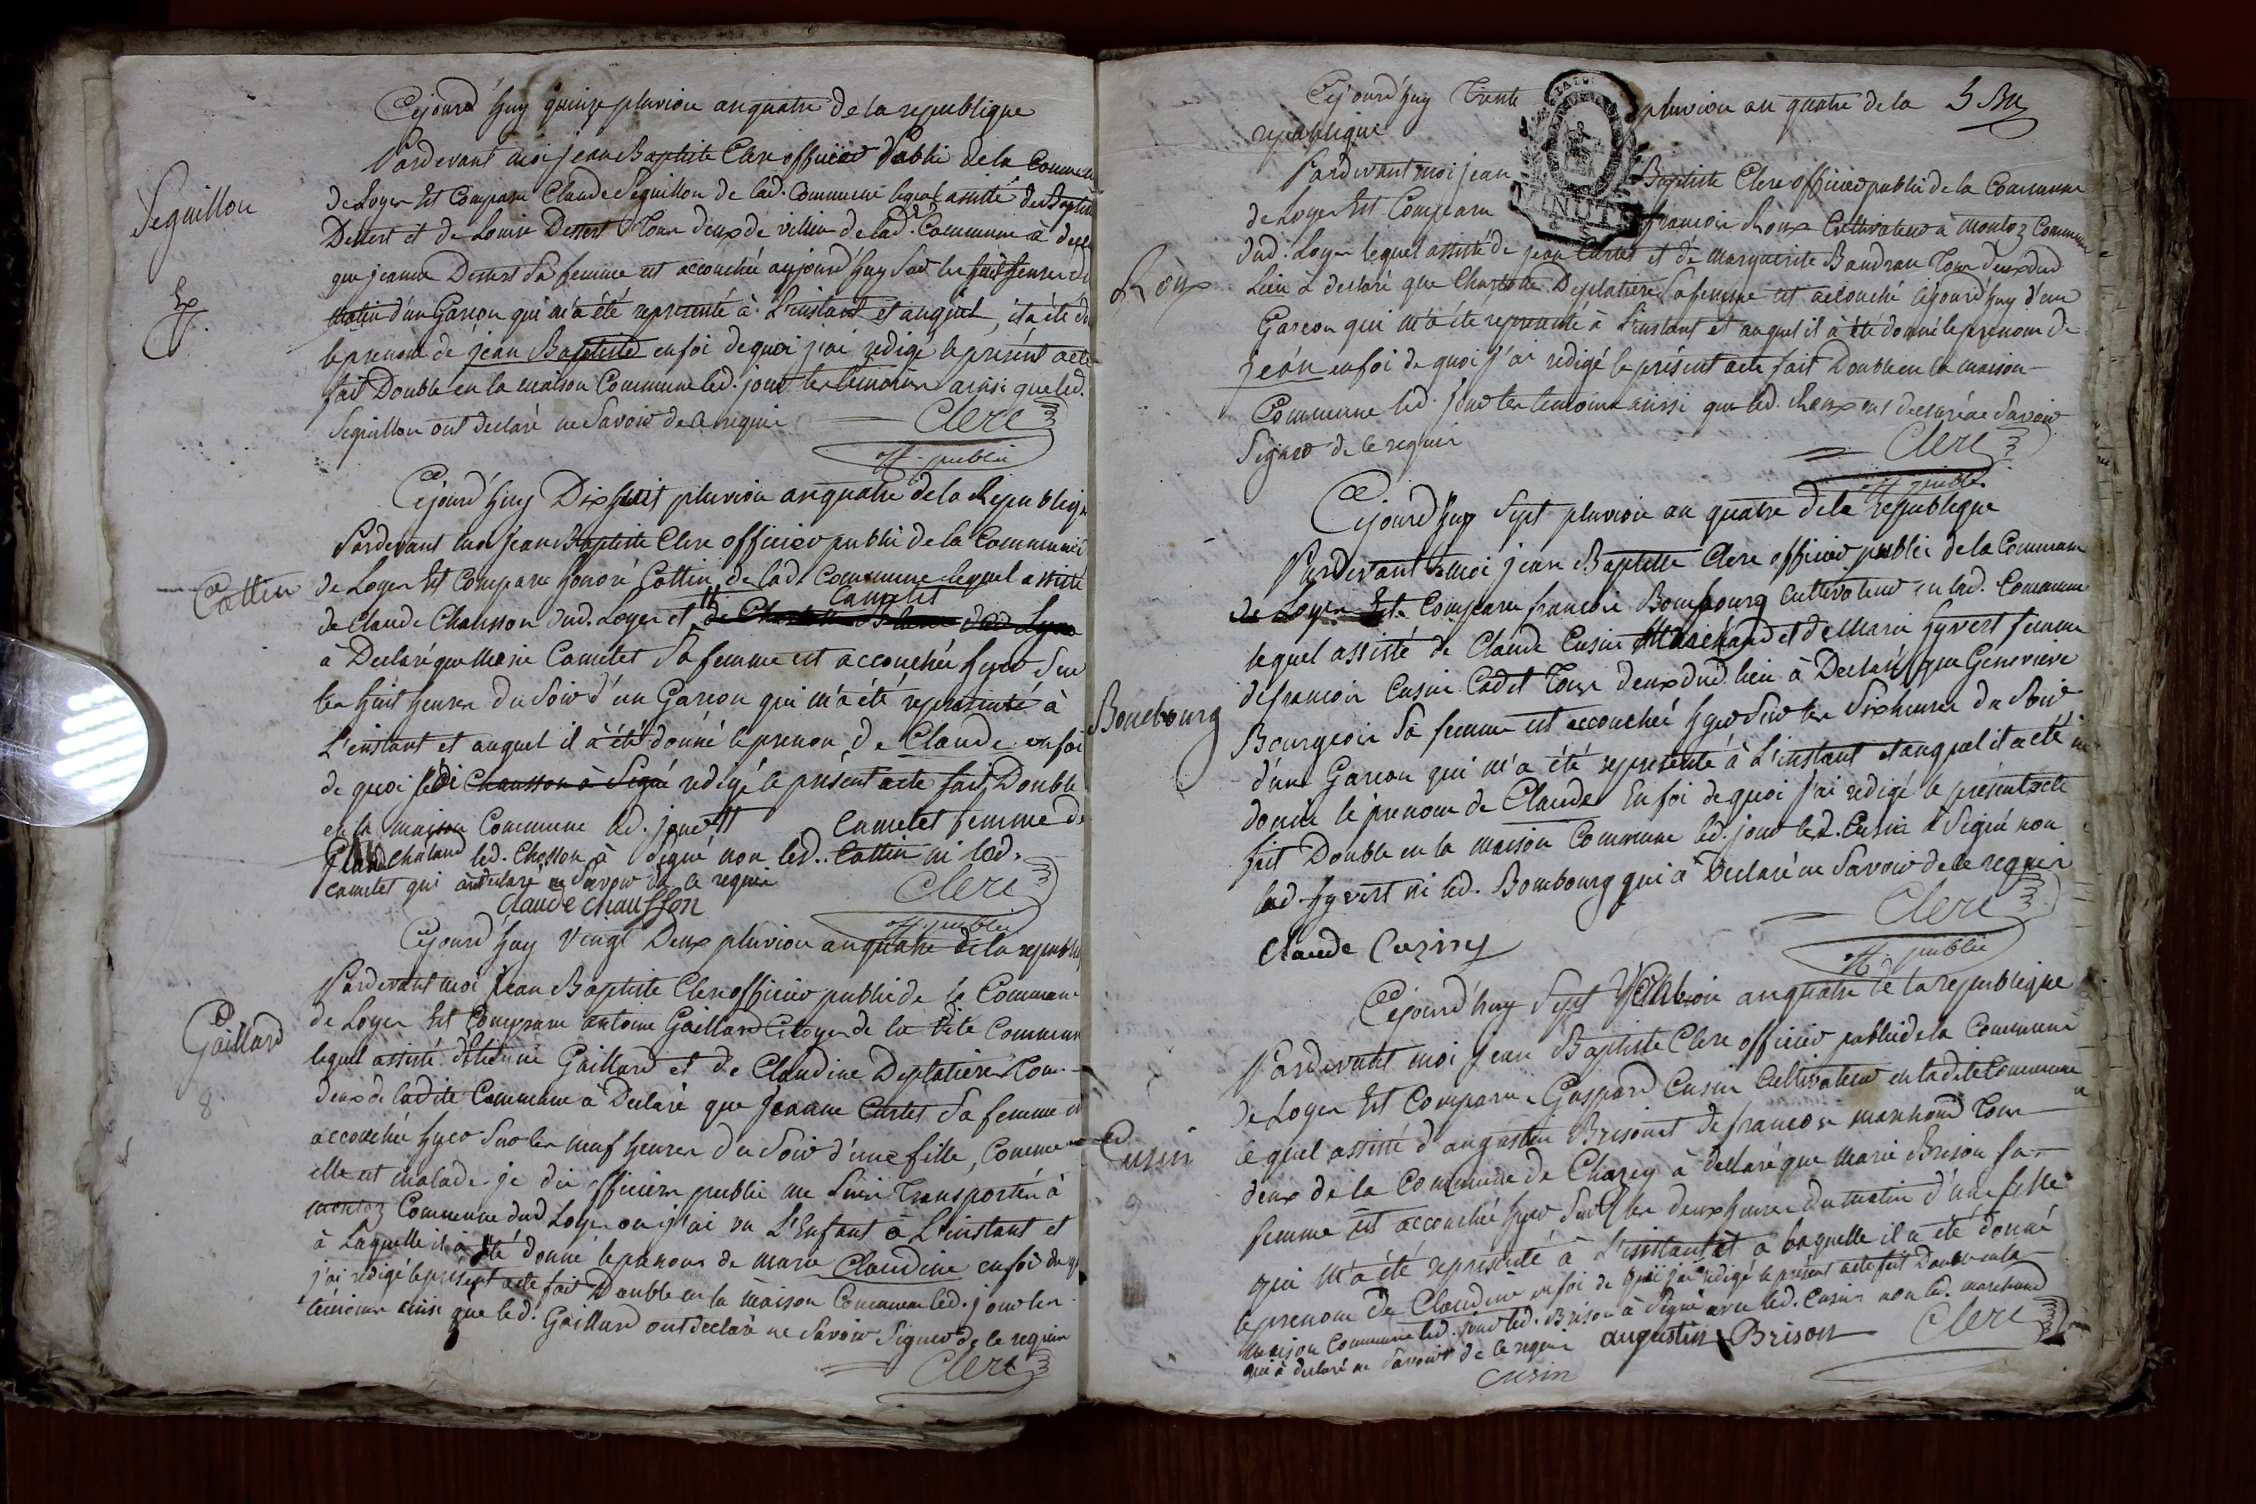 Cejourd'huy quinze pluviose an quatre de la republique
Pardevant moi jean Baptiste Clerc officier Public de la Commune
Seguillon
de Loyes Est Comparu Claude Seguillon de lad. Commune lequel assisté de Baptiste
Dessert et de Louise Dessert Tous deux de de lad. Commune à
que jeanne Dessert Sa femme est accouchée aujourd'huy Sur les huit heures du
matin d'un Garson qui m'a été representé à L'instant et auquel, il a été
le prenom de jean Baptiste en foi de quoi j'ai redigé le présent acte
fait Double en la maison Commune led. jour les temoins ainsi que led.
Seguillon ont declaré ne Savoir de ce requis
Clerc
off. public
Cejourd'huy Dix huit pluviose an quatre de la Republique
Pardevant moi jean Baptiste Clerc officier public de la Commune
Cottin
de Loyes Est Comparu honoré Cottin de lad. Commune lequel assisté
Camelet
de Claude Chausson dud. Loyes et de
à Declaré que Marie Camelet Sa femme est accouchée hyer Sur
les huit heures du Soir d'un Garson qui m'a été representé à
L'instant et auquel il à été donné le prenom de Claude en foi
de quoi led. Chausson à Signé redigé le présent acte fait Double
en la maison Commune led. jour Camelet femme de
chaland led. Chosson à Signé non led. Cottin ni lad.
camelet qui declaré ne Savoir de ce requis
Clerc
Claude chausson
off. public
Cejourd'huy vingt Deux pluviose an quatre de la republique
Pardevant moi Jean Baptiste Clerc officier public de la Commune
Gaillard
de Loyes Est Comparu antoine Gaillard Citoyen de la dite Commune
lequel assisté d'Etienne Gaillard et de Claudine Deplatiere Tous
8
deux de ladite Commune à Declaré que jeanne Curtet Sa femme est
accouchée hyer Sur les neuf heures du Soir d'une fille, Comme
elle est malade je dis officier public me Suis Transporté à
montoz Commune dud Loyes ou j'ai vu L'Enfant à L'instant et
à Laquelle il à été donné le prenom de marie Claudine en foi de
j'ai redigé le présent acte fait Double en la maison Commune led. jour les
témoins ainsi que led. Gaillard ont declaré ne Savoir Signer de ce requis
Clerc
Cejourd'huy Trente pluviose an quatre de la
republique
MINUTE
Pardevant moi jean Baptiste Clerc officier public de la Commune
de Loyes Est Comparu francois Roux Cultivateur à montoz Commune
Roux
dud. Loyes lequel assisté de jean Curtet et de marguerite Baudran Tous deux dud
Lieu à declaré que Charlotte Deplatiere Sa femme est accouché cejourd'huy d'un
Garson qui m'a été representé à L'instant et auquel il à été donné le prenom de
jean en foi de quoi j'ai redigé le présent acte fait Double en la maison
Commune led. jour les temoins ainsi que led. Roux ont declaré ne Savoir
Signer de ce requis
Clerc
off. public
Cejourd'huy Sept pluviose an quatre de la republique
Pardevant moi jean Baptiste Clerc officier public de la Commune
de Loyes Est Comparu francois Bombourg cultivateur en lad. Commune
lequel assisté de Claude Cusin Marchand et de Marie hyvert femme
de francois Cusin Cadet Tous deux dud. lieu à Declaré que Genevieve
Bonebourg
Bourgeois Sa femme est accouchée hyer Sur les Six heures du Soir
d'un Garson qui m'a été representé à L'instant et auquel il a été
donné le prenom de Claude En foi de quoi j'ai redigé le présent acte
fait Double en la maison Commune led. jour led. Cusin à Signé non
lad. hyvert ni led. Bombourg qui à Declaré ne Savoir de ce requis
Clerc
Claude Cuziny
off. public
Cejourd'huy Sept Ventose an quatre de la republique
Pardevant moi jean Baptiste Clerc officier public de la Commune
de Loyes Est Comparu Gaspard Cusin Cultivateur en ladite Commune
Cusin
9
lequel assisté d'augustin Brison et de francois marchand Tous
deux de la Commune de Charey à declaré que Marie Brison Sa
femme est accouchée hyer Sur les deux heures du matin d'une fille
qui m'a été représenté à L'instant et à laquelle il a été donné
le prenom de Claudine en foi de quoi j'ai redigé le présent acte fait Double en la
maison Commune led. jour led. Brison à Signé avec led. Cusin non led. marchand
qui à declaré ne Savoir de ce requis augustin Brison Clerc
cusin